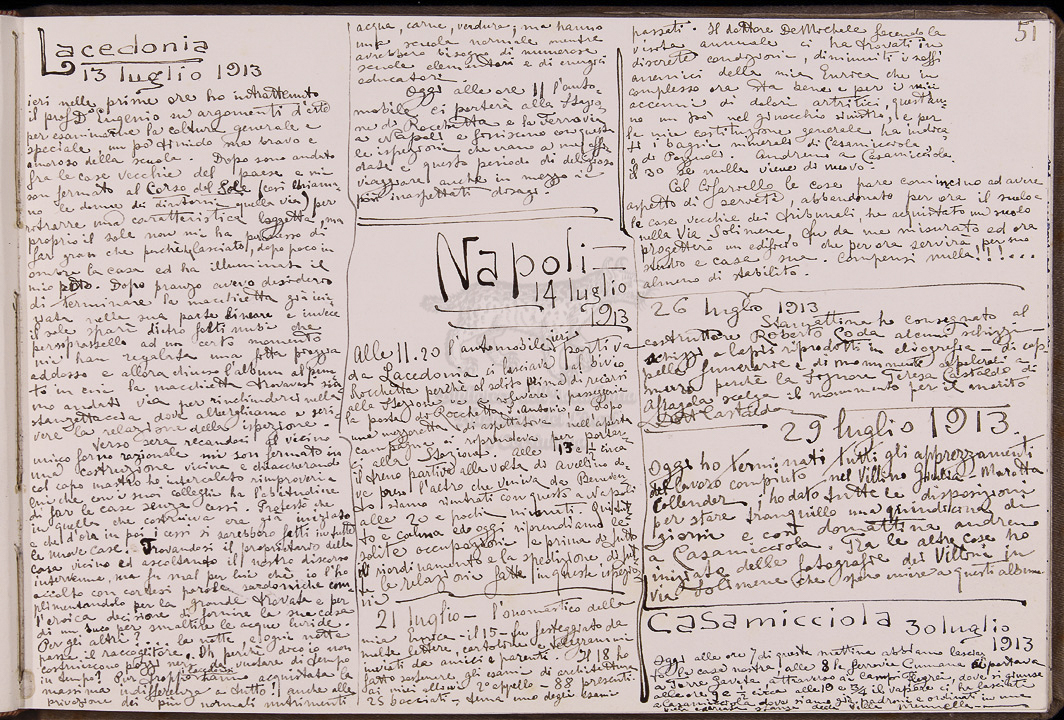 51
Lacedonia
13 luglio 1913
ieri nelle prime ore ho intrattenuto
il prof. D. Eugenio su argomenti d'arte
per esaminarne la coltura generale e
speciale, un po' timido ma bravo e
amoroso della scuola. Dopo sono andato
fra le case vecchie del paese e mi
son fermato al Corso del Sole (così chiama-
no le donne di dintorni quella via) per
ritrarre una caratteristica loggetta, ma
proprio il sole non mi ha permesso di
far gran che perchè lasciato, dopo poco in
ombra la casa ed ha illuminato il
mio posto. Dopo pranzo avevo desiderio
di terminare la macchietta già ini-
ziata nella sua parte lineare e invece
il sole sparì dietro folti nubi che
persopra bello ad un certo momento
mi han regalata una fitta pioggia
addosso e allora chiuso l'album al pun-
to in cui la macchietta trovavasi sia-
mo andati via per rinchiuderci nella
stanzettaccia dove alberghiamo e scri-
vere la relazione della ispezione.
Verso sera recandosi al vicino
unico forno razionale mi son fermato in
una costruzione vicina e chiaccherando
col capo mastro ho intercalato rimproveri a
lui che con i suoi colleghi ha l'abitudine
di far le case senza cessi. Protestò che
in quella che costruiva era già iniziato
e che d'ora in poi i cessi si sarebbero fatti in tutte
le nuove case. Trovandosi il proprietario della
casa vicino ed ascoltando il nostro discorso
intervenne, ma fu mal per lui chè io l'ho
accolto con cortesi parole sardoniche com-
plimentandolo per la grande trovata e per
l'eroica decisione di fornire la sua casa
di un buco per smaltire le acque luride.
Per gli altri? ... la notte, e ogni notte
passa il raccoglitore. Oh perchè dico io non
costruiscono pozzi neri da vuotare di tempo
in tempo! Pur troppo hanno acquistata la
massima indifferenza a tutto! anche alla
privazione dei più normali nutrimenti
acqua, carne, verdura; ma hanno
una scuola normale mentre
avrebbero bisogno di numerose
scuole elementari e di energici
educatori.
Oggi alle ore 11 l'auto-
mobile ci porterà alla Stazio-
ne di Rocchetta e la ferrovia
a Napoli e finiscono con questa
le ispezioni che erano a me affi-
date e questo periodo di delizioso
viaggiare anche in mezzo ai
più inaspettati disagi.
Napoli -
14 luglio
1913
Alle 11.20 l'automobile ieri partiva
da Lacedonia, ci lasciava al bivio
Rocchetta perchè al solito prima di recarsi
alla Stazione deve rilevare i passeggieri e
la posta di Rocchetta S. Antonio, e dopo
una mezzoretta di aspettativa nell'aperta
campagna ci riprendeva per portar-
ci alla Stazione. Alle 13 e ½ circa
il treno partiva alla volta di Avellino do-
ve preso l'altro che veniva da Beneven-
to siamo rientrati con questo a Napoli
alle 20 e pochi minuti.
to e calma ed oggi riprendiamo le
solite occupazioni e prima di tutto
il riordinamento e la spedizione di tut-
te le relazioni fatte in queste ispezio-
ni.
21 luglio - l'onomastico della
mia Enrica - il 15 - fu festeggiato da
molte lettere, cartoline e telegrammi
inviati da amici e parenti. Il 18 ho
fatto sostenere gli esami di architettura
ai miei allievi 2° appello - 88 presenti
25 bocciati - Anno anno degli esami
passati. Il dottore De Michele facendo la
visita annuale ci ha trovati in
discrete condizioni, diminuiti i soffi
anemici della mia Enrica che in
complesso ora sta bene e per i miei
accenni di dolori artritici, quest'an-
no un po' nel ginocchio sinistro, e per
la mia costituzione generale ha indica-
ti i bagni minerali di Casamicciola
o di Pozzuoli. Andremo a Casamicciola
il 30 se nulla viene di nuovo.
Col Cifariello le cose pare comincino ad avere
aspetto di serietà, abbandonato per ora il suolo e
le case vecchie dei tribunali, ha acquistato un suolo
nella Via Solimene, fu da me misurato ed ora
progetterò un edificio che per ora servirà per suo
studio e casa sua. Compensi nulla!!!...
almeno di stabilito.
26 luglio 1913
Stamattina ho consegnato al
costruttore Roberto Coda alcuni schizzi -
schizzi a lapis riprodotti in eliografia - di cap-
pella funeraria e di monumento sepolcrale a
muro perchè la Signora Teresa Castaldo di
Afragola scelga il monumento per il marito
Castaldo.
29 luglio 1913.
Oggi ho terminati tutti gli apprezzamenti
del lavoro compiuto nel Villino Giulia - Marotta
Collender, i ho dato tutte le disposizioni
per stare tranquillo una quindicina di
giorni e così domattina andremo
a Casamicciola. Tra le altre cose ho
iniziate delle fotografie dei Villini in
via Solimene che spero unire a questi albums.
Casamicciola 30 luglio
1913
Oggi alle ore 7 di questa mattina abbiamo lasciato
la casa nostra, alle 8 la ferrovia Cumana ci portava
a Torre gaveta attraverso ai campi Flegrei, dove si giunse